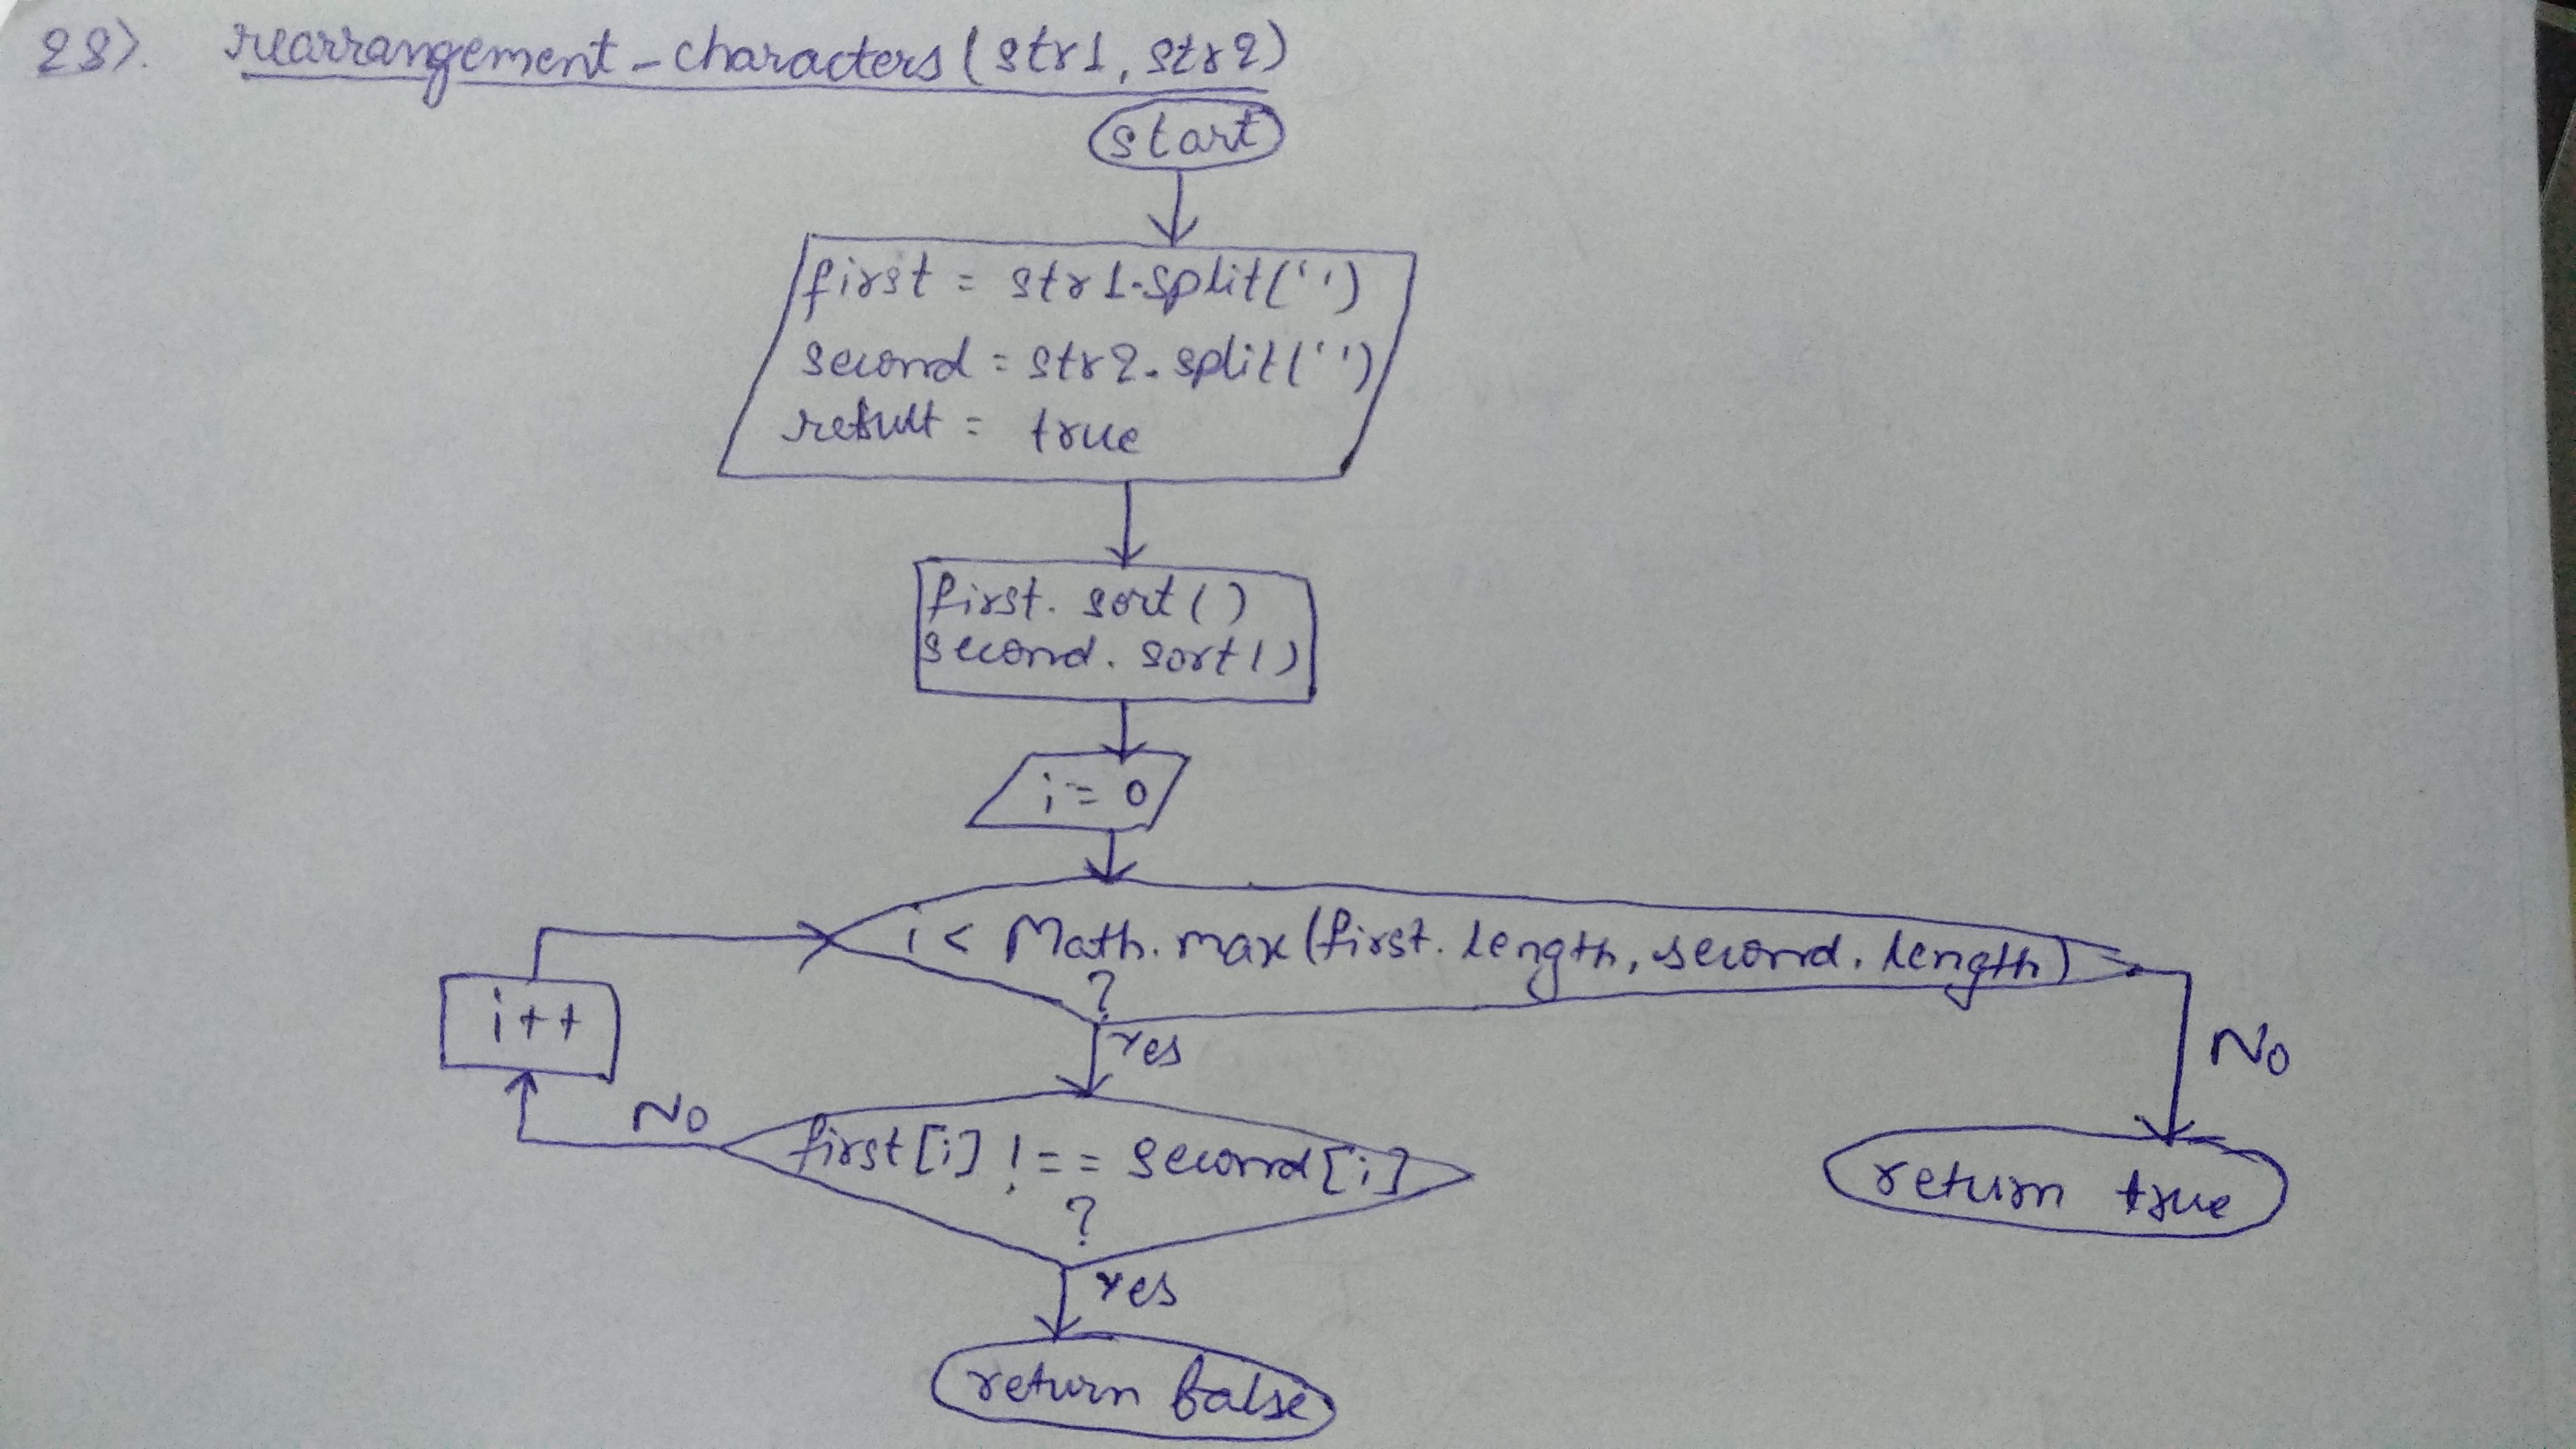 28). rearrangement_characters(str1, str2)
start
first = str1.split('')
second = str2.split('')
result = true
first. sort()
second. sort()
i = 0
i < Math.max(first.length, second.length)
?
Yes
No
i++
No
first[i] !== second[i]
?
return true
Yes
return false